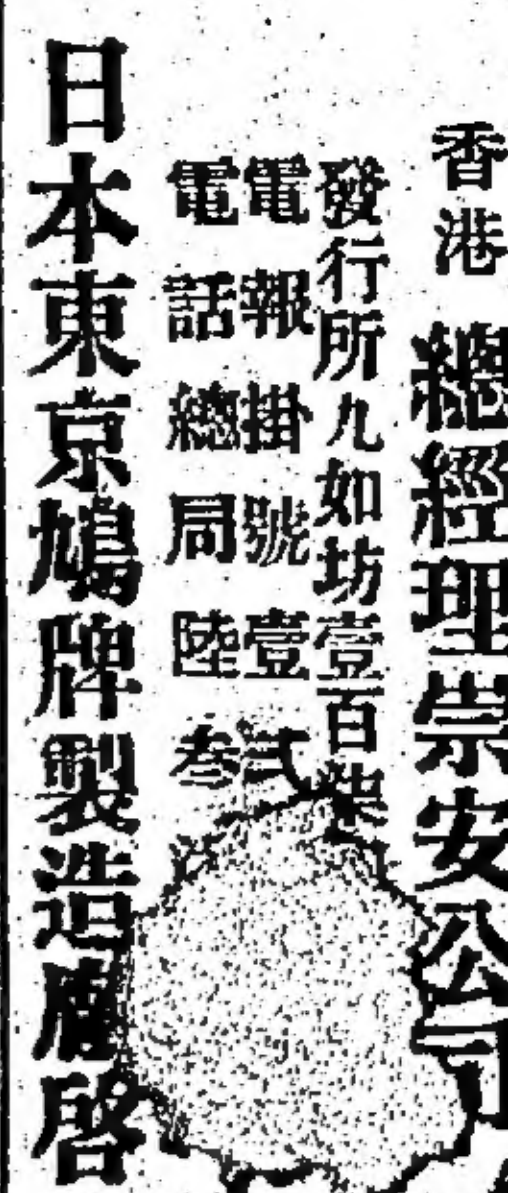 香港 總經理崇安公司
發行所九如坊壹百柒
電報掛號壹弍
電話總局陸叁
日本東京鳩牌製造廠啓